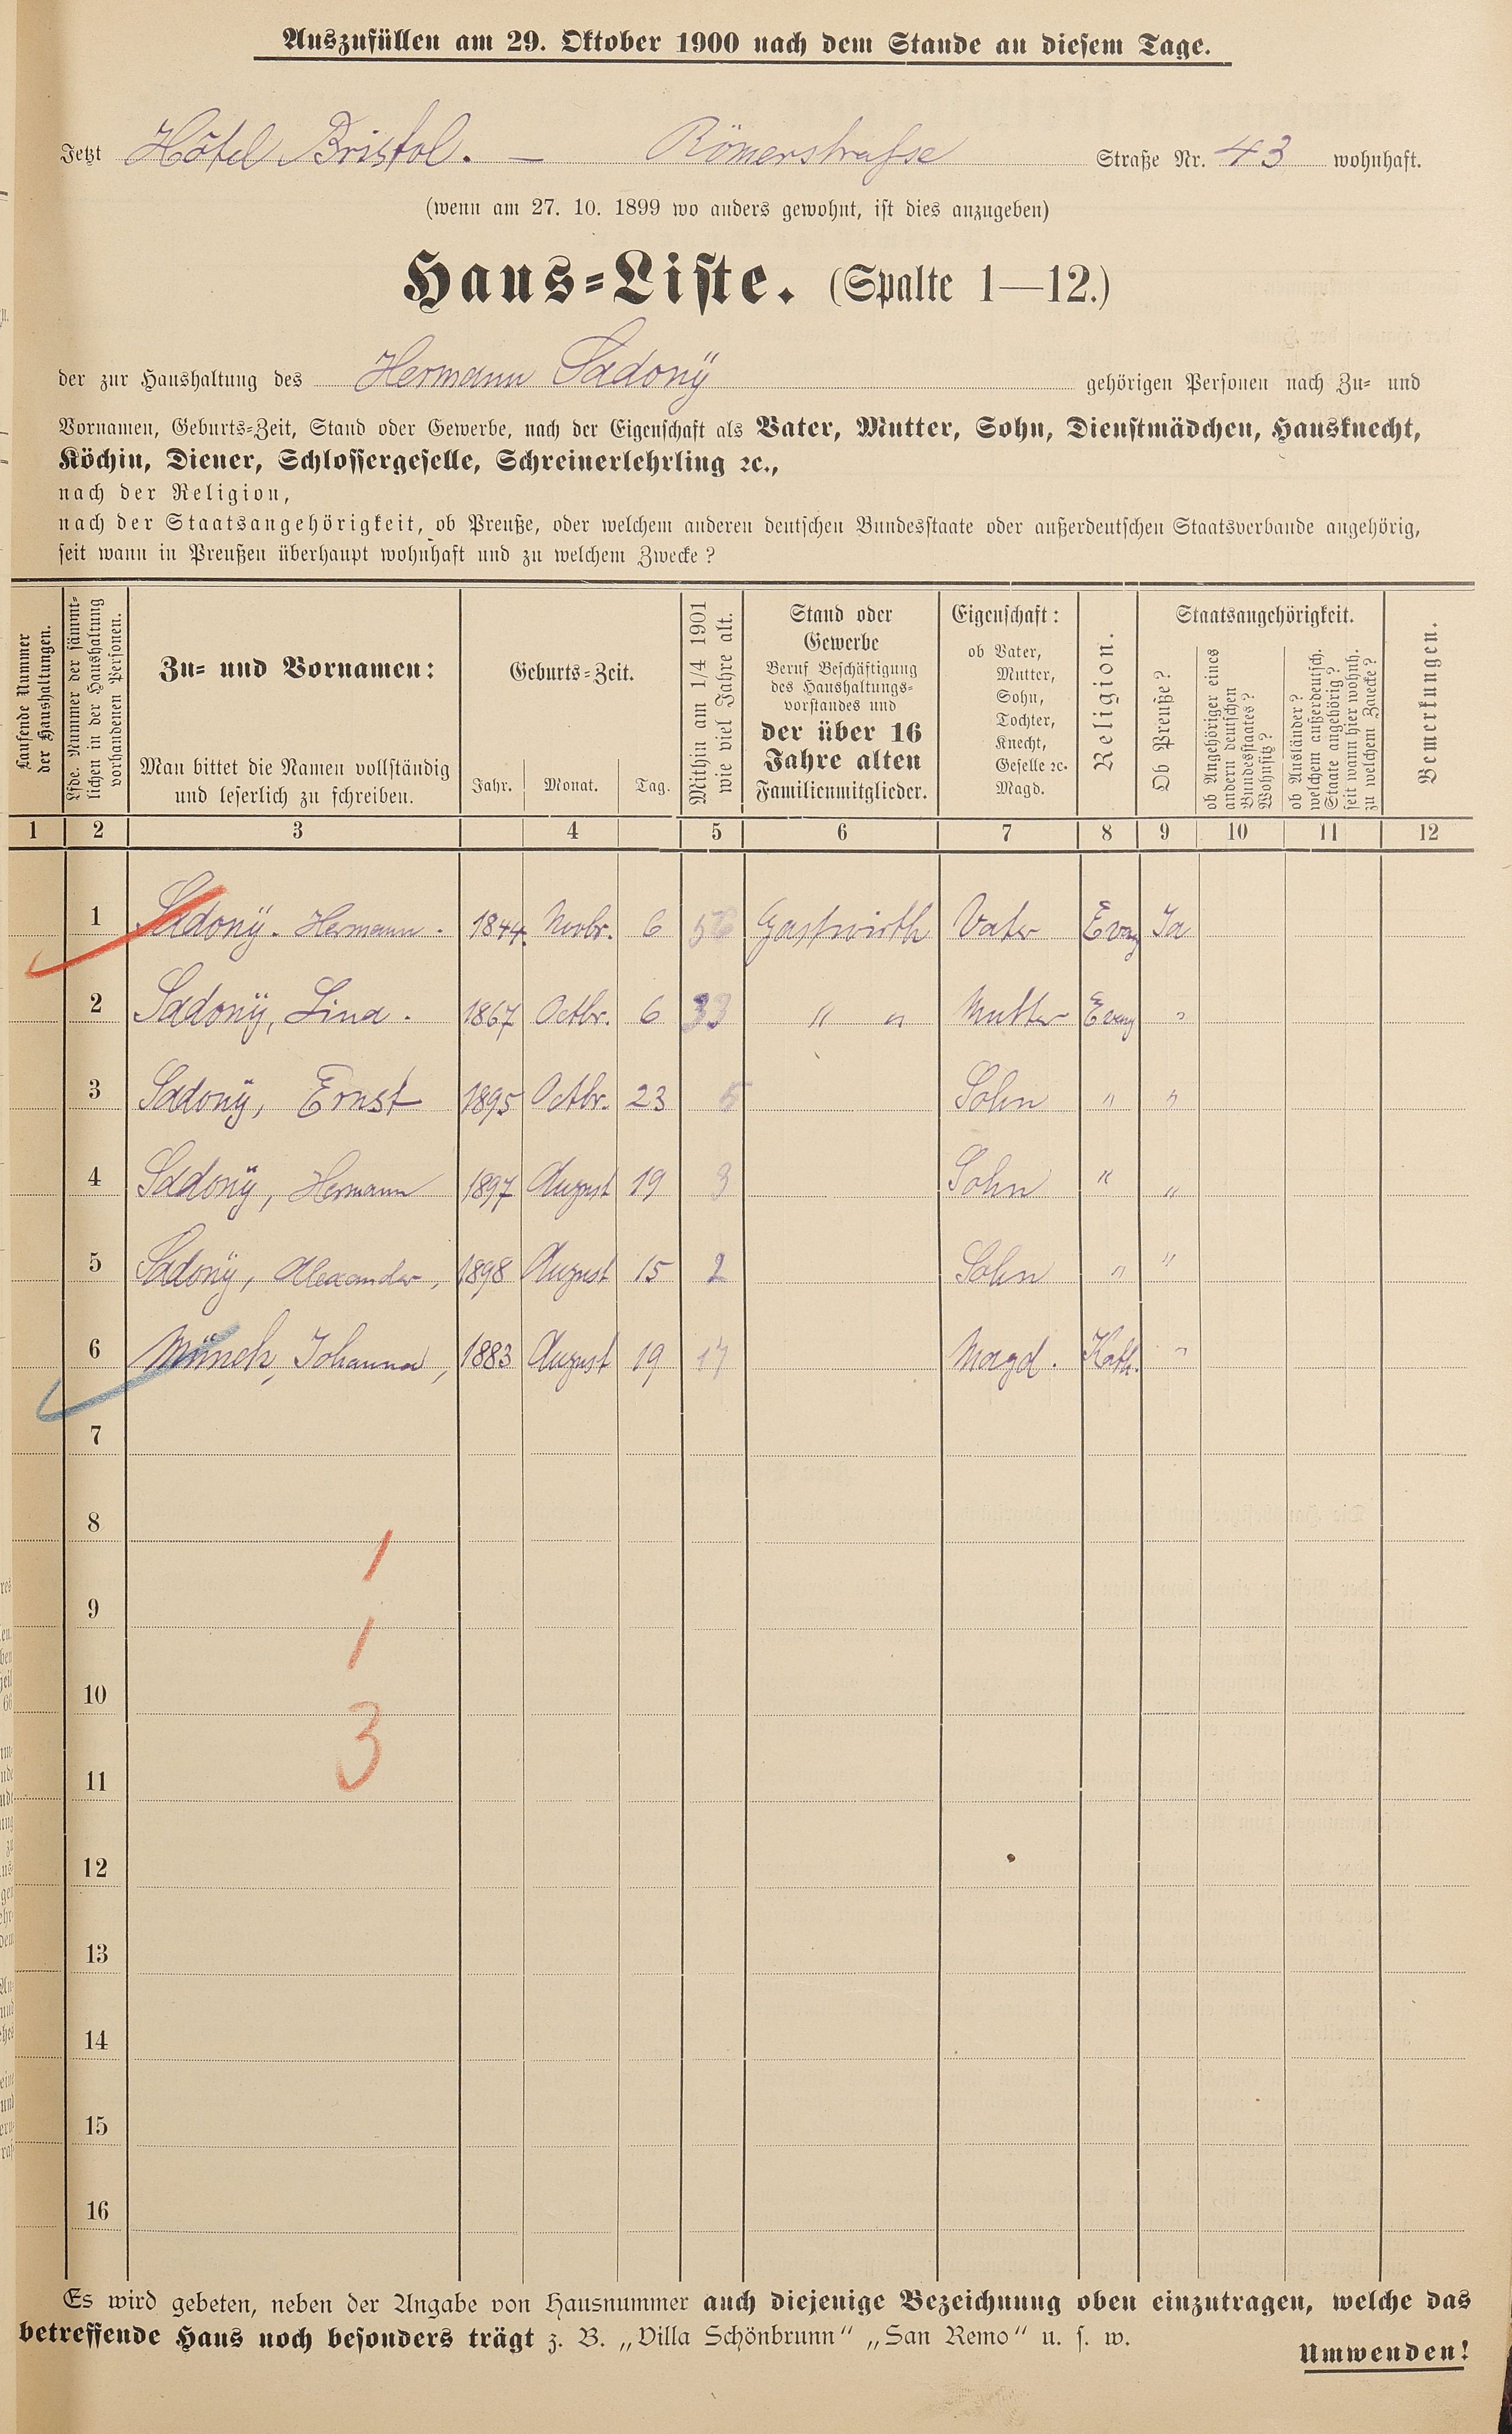 Auszufüllen am 29. Oktober 1900 nach dem Stande an diesem Tage.
Jetzt Hôtel Bristol. — Römerstrasse Straße Nr. 43 wohnhaft.
(wenn am 27. 10. 1899 wo anders gewohnt, ist dies anzugeben)
Haus-Liste. (Spalte 1—12.)
der zur Haushaltung des Hermann Sadonÿ gehörigen Personen nach Zu- und
Vornamen, Geburts-Zeit, Stand oder Gewerbe, nach der Eigenschaft als Vater, Mutter, Sohn, Dienstmädchen, Hausknecht,
Köchin, Diener, Schlossergeselle, Schreinerlehrling ꝛc.,
nach der Religion,
nach der Staatsangehörigkeit, ob Preuße, oder welchem anderen deutschen Bundesstaate oder außerdeutschen Staatsverbande angehörig,
seit wann in Preußen überhaupt wohnhaft und zu welchem Zwecke?
Laufende Nummer
der Haushaltungen.
Lfde. Nummer der sämmt-
lichen in der Haushaltung
vorhandenen Personen.
Zu- und Vornamen:
Man bittet die Namen vollständig
und leserlich zu schreiben.
Geburts-Zeit.
Jahr. Monat. Tag.
Mithin am 1/4 1901
wie viel Jahre alt.
Stand oder
Gewerbe
Beruf Beschäftigung
des Haushaltungs-
vorstandes und
der über 16
Jahre alten
Familienmitglieder.
Eigenschaft:
ob Vater,
Mutter,
Sohn,
Tochter,
Knecht,
Geselle ꝛc.
Magd.
Religion.
Staatsangehörigkeit.
Ob Preuße?
ob Angehöriger eines
andern deutschen
Bundesstaates?
Wohnsitz?
ob Ausländer?
welchem außerdeutsch.
Staate angehörig?
seit wann hier wohnh.
zu welchem Zwecke?
Bemerkungen.
1 2 3 4 5 6 7 8 9 10 11 12
1 Sadonÿ. Hermann. 1844. Novbr. 6 56 Gastwirth Vater Evag Ja
2 Sadonÿ, Lina. 1867 Octbr. 6 33 " " Mutter Evag "
3 Sadonÿ, Ernst 1895 Octbr. 23 5 Sohn " "
4 Sadonÿ, Hermann 1897 August 19 3 Sohn " "
5 Sadonÿ, Alexander, 1898 August 15 2 Sohn " "
6 Münch, Johanna, 1883 August 19 17 Magd. Kath. "
7
8
1
9
1
10
3
11
12
13
14
15
16
Es wird gebeten, neben der Angabe von Hausnummer auch diejenige Bezeichnung oben einzutragen, welche das
betreffende Haus noch besonders trägt z. B. „Villa Schönbrunn" „San Remo" u. s. w.
Umwenden!